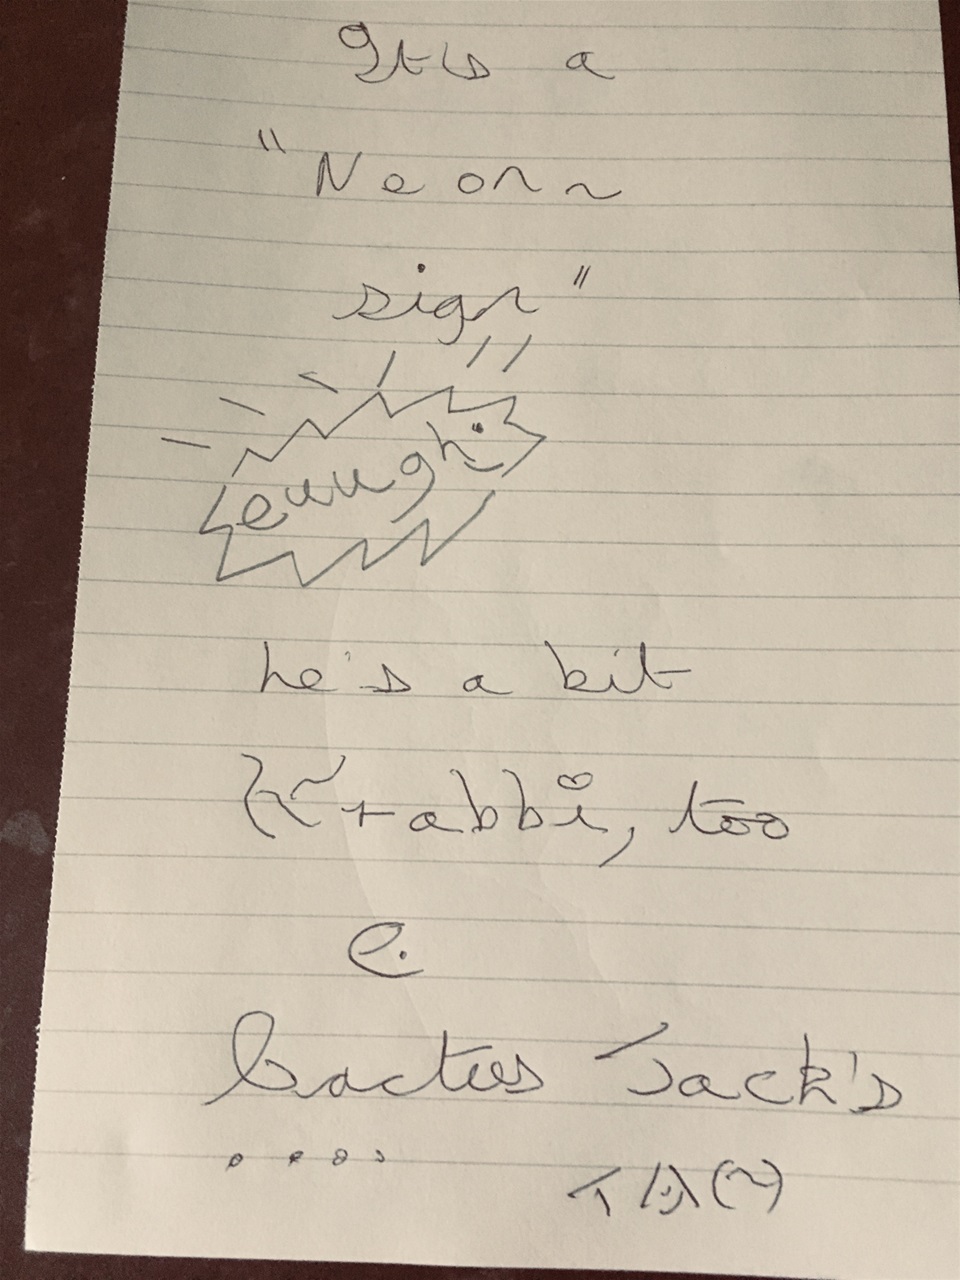 It's a
"Neon
sign"
euugh
he's a bit
Krabbi, too
e.
Cactus Jack's
....